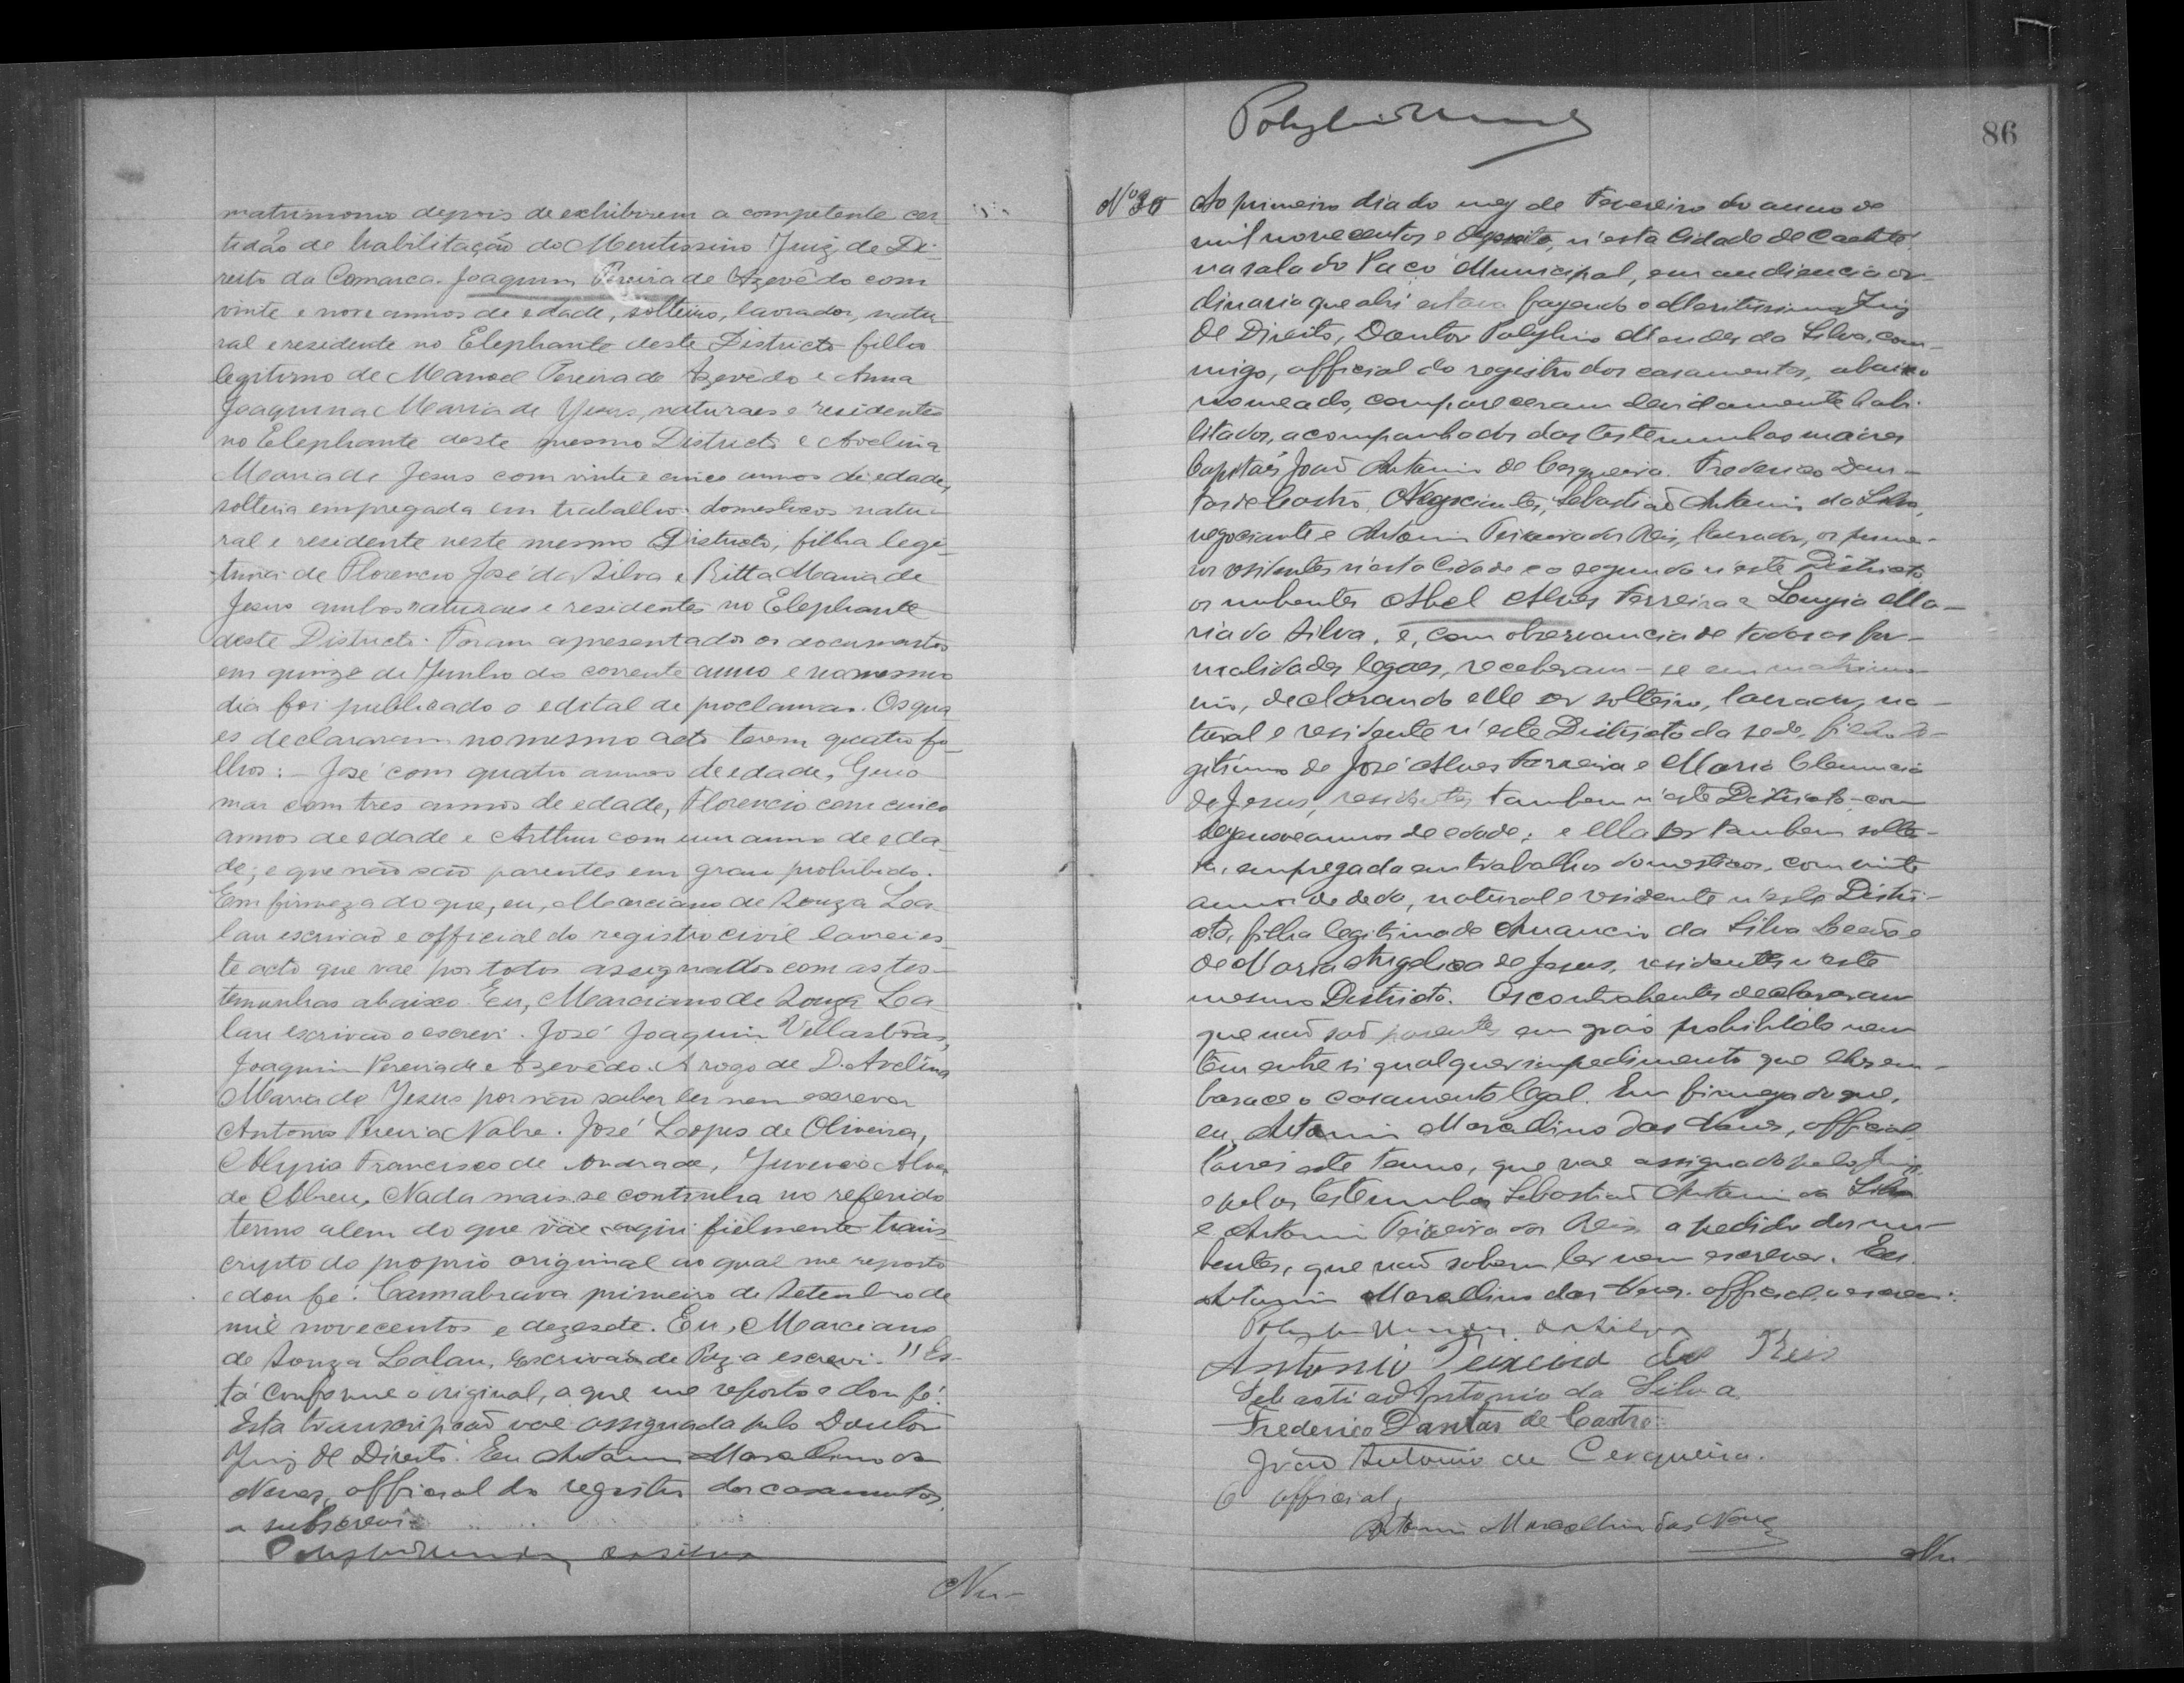 matrimonio depois de exhibirem a competente cer
tidão de habilitação do Meritissimo Juiz de Di-
reito da Comarca. Joaquim Pereira de Azevêdo com
vinte e nove annos de edade, solteiro, lavrador, natu-
ral e residente no Elephante deste Districto filho
legitimo de Manoel Pereira de Azevêdo e Anna
Joaquina Maria de Jesus, naturaes e residentes
no Elephante deste mesmo Districto e Avelina
Maria de Jesus com vinte e cinco annos de edade,
solteira empregada em trabalhos domesticos natu-
ral e residente neste mesmo Districto, filha legi-
tima de Florencio José da Silva e Ritta Maria de
Jesus ambos naturaes e residentes no Elephante
deste Districto. Foram apresentados os documentos
em quinze de Junho do corrente anno e no mesmo
dia foi publicado o edital de proclamas. Os qua
es declararam no mesmo acto terem quatro fi-
lhos: - José com quatro annos de edade, Guio
mar com tres annos de edade, Florencio com cinco
annos de edade e Arthur com um anno de eda
de; e que não são parentes em grau prohibido.
Em firmeza do que, eu, Marciano de Souza La
lau escrivão e official do registro civil lavrei es
te acto que vae por todos assignados com as tes-
temunhas abaixo. Eu, Marciano de Souza La
lau escrivão o escrevi. José Joaquim Villasbôas,
Joaquim Pereira de Azevêdo. A rogo de D. Avelina
Maria de Jesus por não saber ler nem escrever
Antonio Pereira Nobre. José Lopes de Oliveira,
Alypio Francisco de Andrade, Juvencio Alves
de Abreu, Nada mais se continha no referido
termo alem do que vae aqui fielmente trans
cripto do proprio original ao qual me reporto
e dou fé. Cannabrava primeiro de Setembro de
mil novecentos e dezesete. Eu, Marciano
de Souza Lalau, Escrivão de Paz a escrevi. " Es-
tá conforme o original, a que me reporto e dou fé.
Esta transcripção vae assignada pelo Doutor
Juiz de Direito. Eu Antonio Marcellino das
Neves, official do registro dos casamentos,
a subscrevi.
Polybio Mendes da Silva
Nu-
86
Nº 30
Ao primeiro dia do mez de Fevereiro do anno de
mil novecentos e dezoito, n'esta Cidade de Caeteté
na sala do Paço Municipal, em audiencia or-
dinaria que ahi estava fazendo o Meritissimo Juiz
de Direito, Doutor Polybio Mendes da Silva, com-
migo, official do registro dos casamentos, abaixo
nomeado, compareceram devidamente habi-
litados, acompanhados das testemunhas maiores
Capitães João Antonio de Cerqueira. Frederico Dan-
tas de Castro, Negociantes, Sebastião Antonio da Silva,
negociante e Antonio Teixeira dos Reis, lavrador, os primei-
ros residentes n'esta Cidade e o segundo n'este Districto
os nubentes Abel Alves Ferreira e Ma-
ria da Silva, e, com observancia de todas as for-
malidades legaes, receberam-se em matrimo-
nio, declarando elle ser solteiro, lavrador, na-
tural e residente n'este Districto da sede, filho le-
gitimo de José Alves Ferreira e Maria Clemencia
de Jesus, residentes tambem n'este Districto, com
dezenove annos de edade; e ella ser tambem soltei-
ra, empregada em trabalhos domesticos, com vinte
annos de edade, natural e residente n'este Distri-
cto, filha legitima de Amancio da Silva Leão e
de Maria Angelica de Jesus, residentes n'este
mesmo Districto. Os contrahentes declararam
que não são parentes em gráo prohibido nem
têm entre si qualquer impedimento que lhes em-
barace o casamento legal. Em firmeza do que,
eu, Antonio Marcellino das Neves, official
lavrei este termo, que vae assignado pelo Juiz
e pelas testemunhas Sebastião Antonio da Silva
e Antonio Teixeira dos Reis a pedido dos nu-
bentes, que não sabem ler nem escrever. Eu,
Antonio Marcellino das Neves, official, o escrevi.
Polybio Mendes da Silva
Antonio Teixeira dos Reis
Sebastião Antonio da Silva
Frederico Dantas de Castro.
João Antonio de Cerqueira.
O official,
Antonio Marcellino das Neves
Nu-